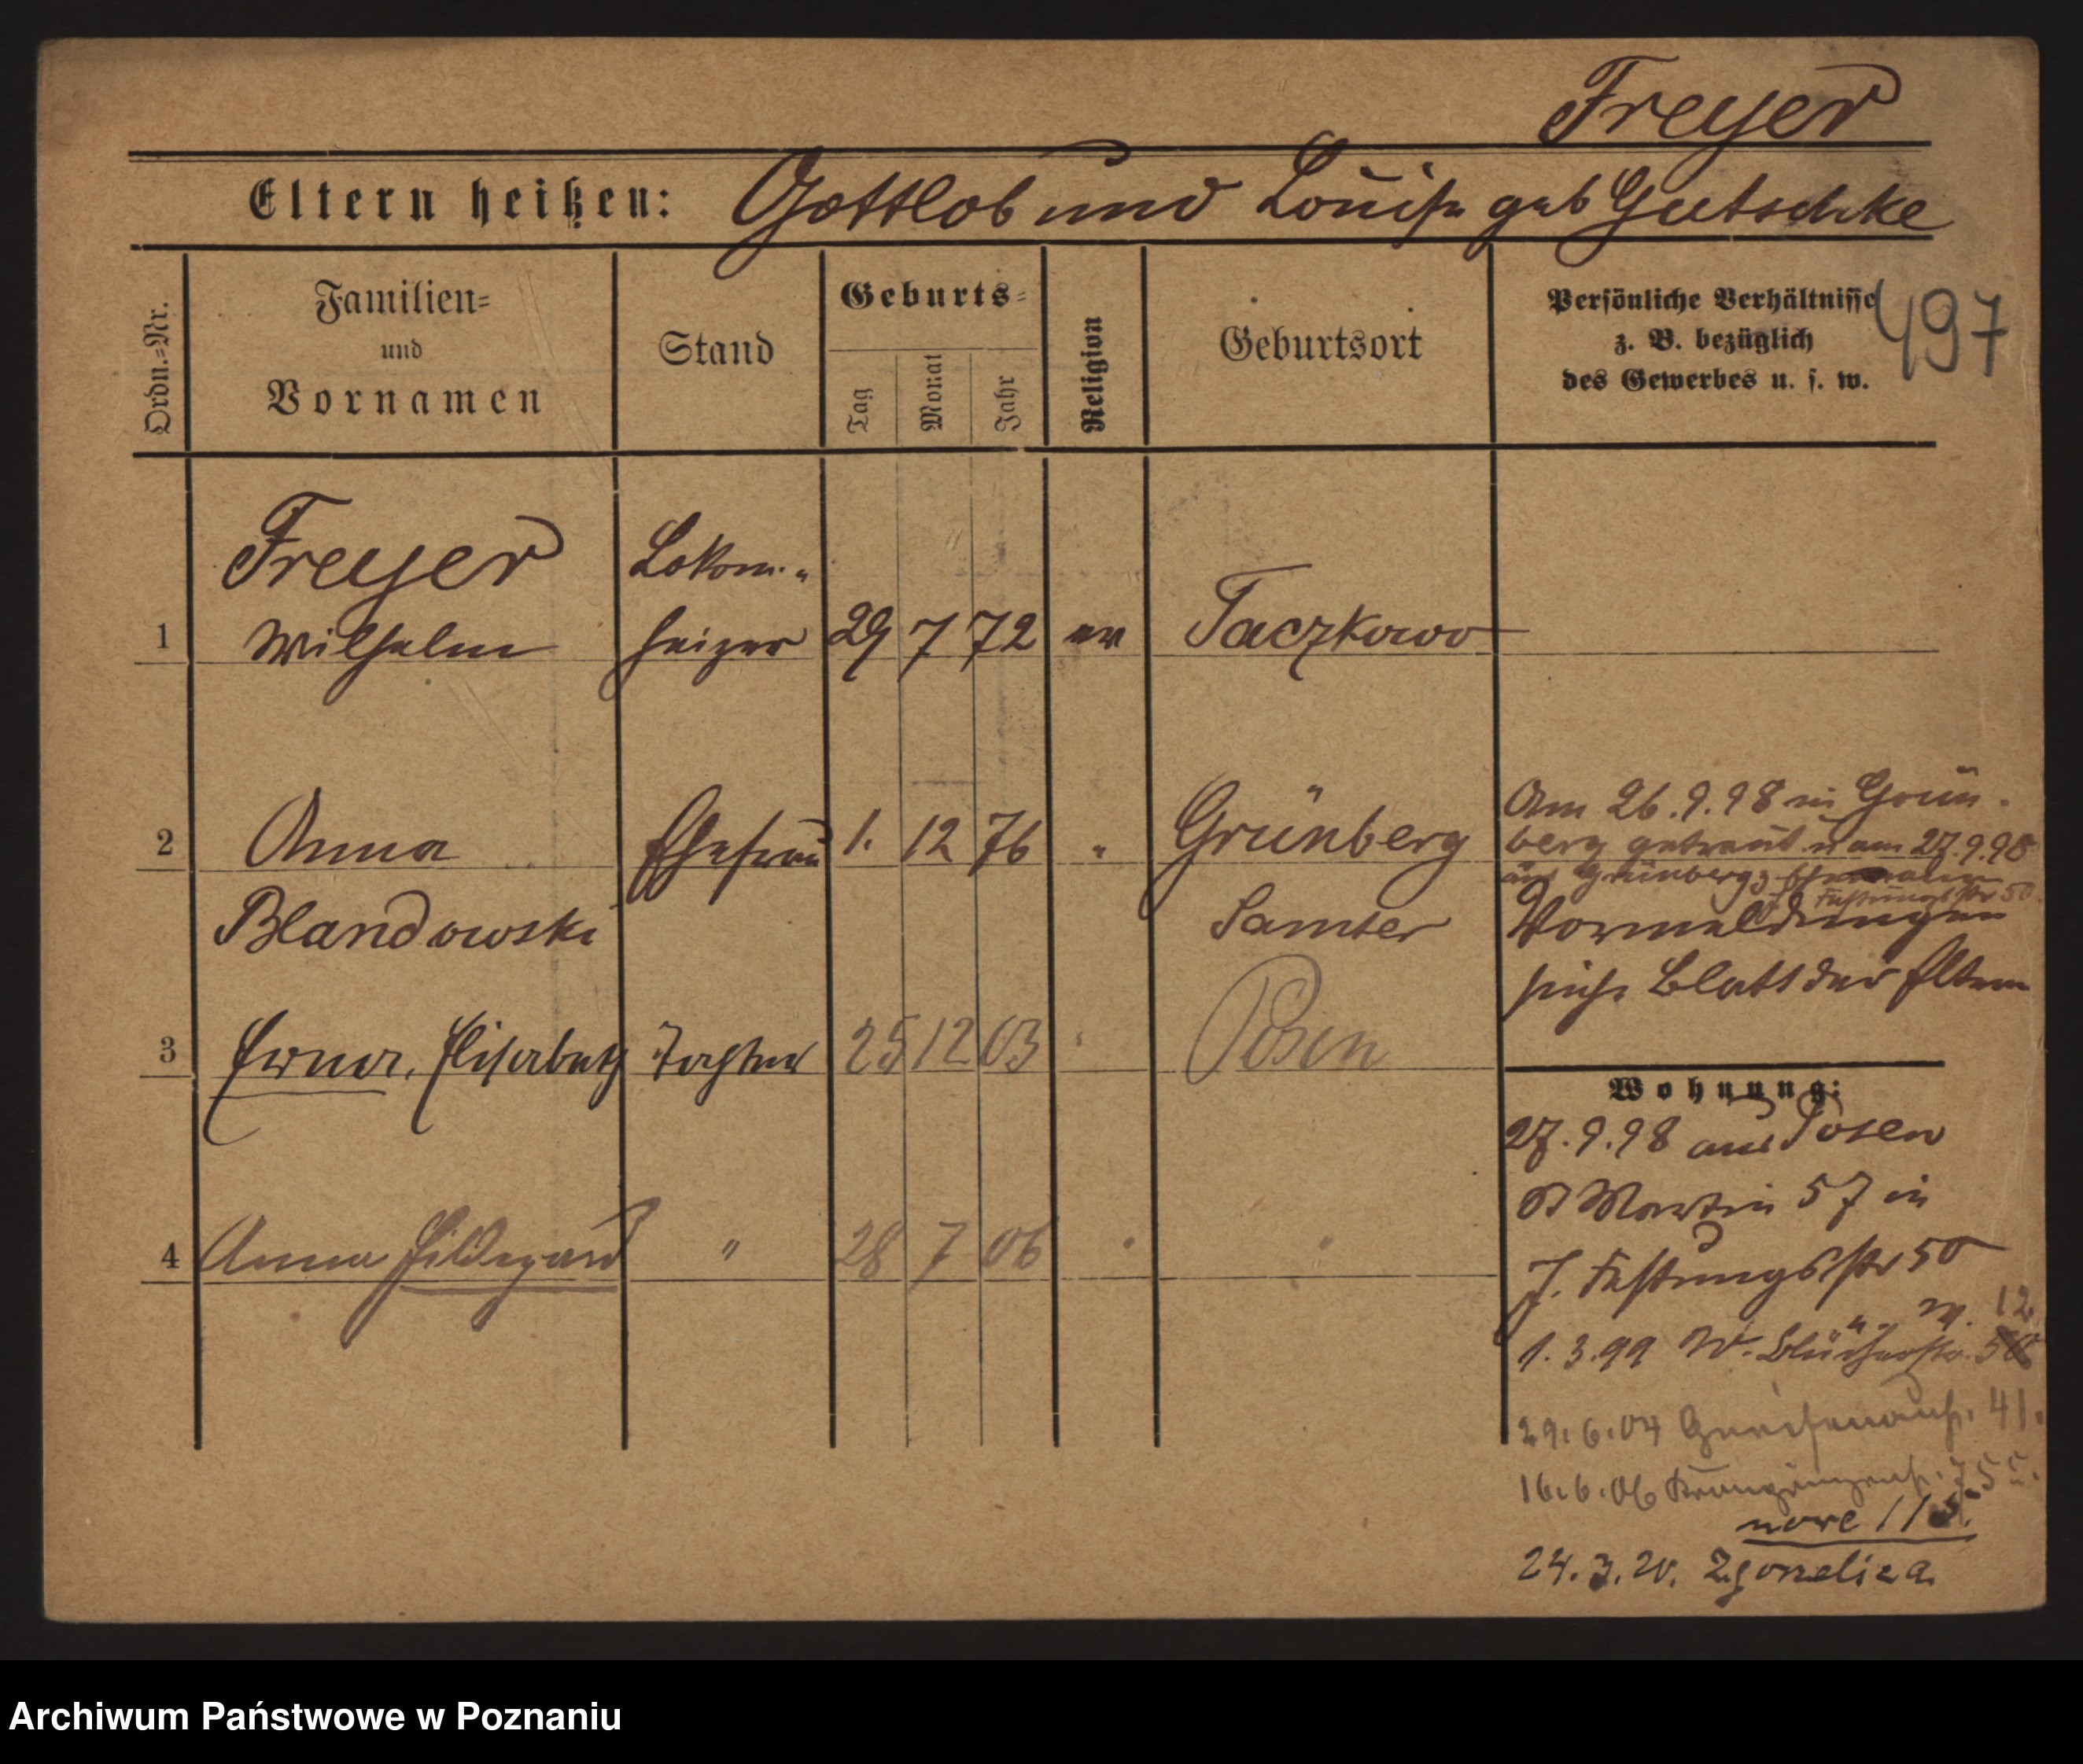 Freyer
Eltern heißen: Gottlob und Louise geb Gutschke
497
Ordn.=Nr.
Familien=
und
Vornamen
Stand
Geburts=
Tag
Monat
Jahr
Religion
Geburtsort
Persönliche Verhältnisse
z. B. bezüglich
des Gewerbes u. s. w.
Freyer Lokom.-
1 Wilhelm heizer 29 7 72 ev Taczkowo
2 Anna Ehefrau 1. 12 76 " Grünberg
Blandowski Samter
Am 26.9.98 in Grün-
berg getraut u am 27.9.98
aus Grünberg
Festungsstr 50
Vormeldungen
siehe Blatt der Eltern
3 Erna, Elisabeth Tochter 25 12 03 " Posen
4 Anna Hildegard " 28 7 06 " "
Wohnung:
27.9.98 aus Posen
St Martin 57 in
J. Festungsstr 50
u. W. 12
1.3.99 W. Blücherstr. 50
29.6.04 Gneisenaustr. 41.
16.6.06
nowe 115.
24.3.20. Zgorzelica
Archiwum Państwowe w Poznaniu